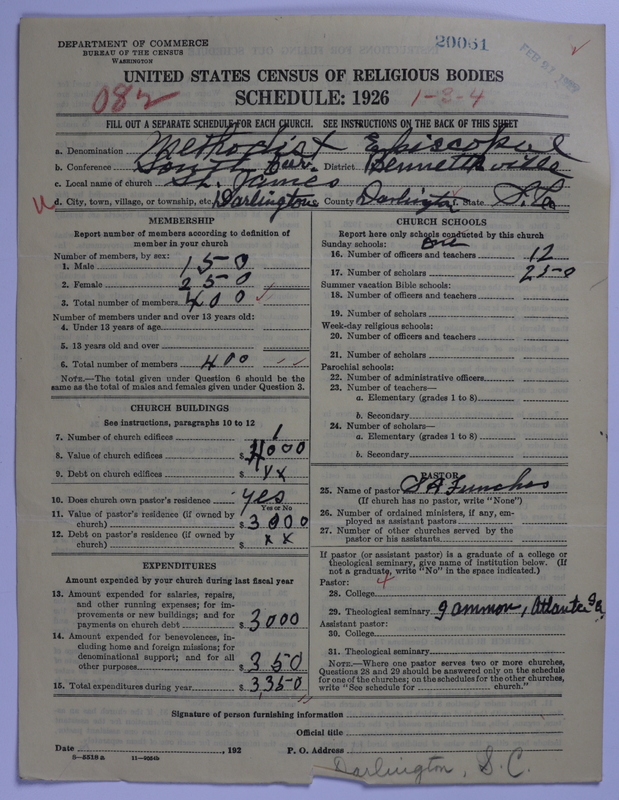 DEPARTMENT OF COMMERCE
BUREAU OF THE CENSUS
WASHINGTON
20061
UNITED STATES CENSUS OF RELIGIOUS BODIES
SCHEDULE: 1926
082
1-3-4
FILL OUT A SEPARATE SCHEDULE FOR EACH CHURCH. SEE INSTRUCTIONS ON THE BACK OF THIS SHEET
a. Denomination Methodist Episcopal
b. Conference South Car. District Bennettsville
c. Local name of church St. James
d. City, town, village, or township, etc. Darlington County Darlington f. State S.C.
MEMBERSHIP
Report number of members according to definition of member in your church
Number of members, by sex:
1. Male 150
2. Female 250
3. Total number of members 400
Number of members under and over 13 years old:
4. Under 13 years of age
5. 13 years old and over
6. Total number of members 400
NOTE.—The total given under Question 6 should be the same as the total of males and females given under Question 3.
CHURCH BUILDINGS
See instructions, paragraphs 10 to 12
7. Number of church edifices 1
8. Value of church edifices $ 4000
9. Debt on church edifices $ xx
10. Does church own pastor's residence yes
Yes or No
11. Value of pastor's residence (if owned by church) $ 3000
12. Debt on pastor's residence (if owned by church) $ x x
EXPENDITURES
Amount expended by your church during last fiscal year
13. Amount expended for salaries, repairs, and other running expenses; for improvements or new buildings; and for payments on church debt $ 3000
14. Amount expended for benevolences, including home and foreign missions; for denominational support; and for all other purposes $ 350
15. Total expenditures during year $ 3,350
CHURCH SCHOOLS
Report here only schools conducted by this church
Sunday schools: One
16. Number of officers and teachers 12
17. Number of scholars 250
Summer vacation Bible schools:
18. Number of officers and teachers
19. Number of scholars
Week-day religious schools:
20. Number of officers and teachers
21. Number of scholars
Parochial schools:
22. Number of administrative officers
23. Number of teachers—
a. Elementary (grades 1 to 8)
b. Secondary
24. Number of scholars—
a. Elementary (grades 1 to 8)
b. Secondary
PASTOR
25. Name of pastor
(If church has no pastor, write "None")
26. Number of ordained ministers, if any, employed as assistant pastors
27. Number of other churches served by the pastor or his assistants
If pastor (or assistant pastor) is a graduate of a college or theological seminary, give name of institution below. (If not a graduate, write "No" in the space indicated.)
Pastor:
28. College
29. Theological seminary Gammon, Atlanta Ga.
Assistant pastor:
30. College
31. Theological seminary
NOTE.—Where one pastor serves two or more churches, Questions 28 and 29 should be answered only on the schedule for one of the churches; on the schedules for the other churches, write "See schedule for church."
Signature of person furnishing information
Official title
Date , 192 P. O. Address
Darlington, S.C.